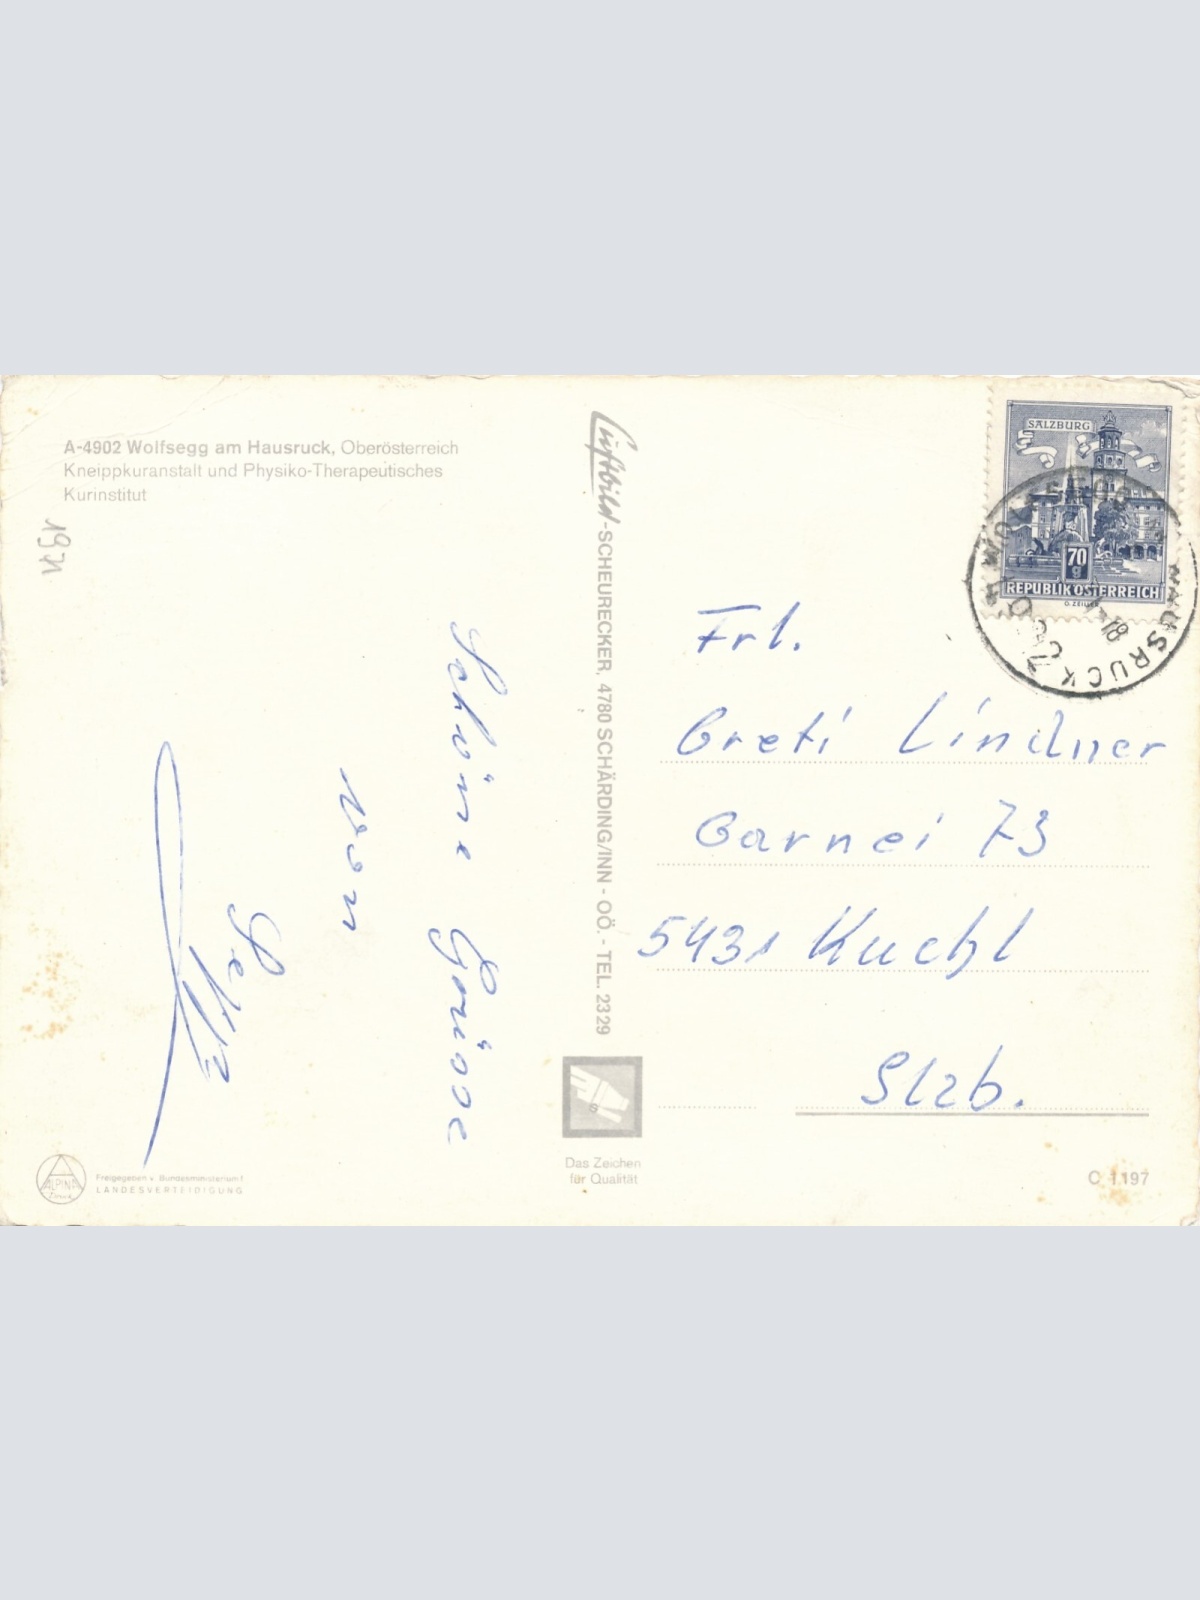 A-4902 Wolfsegg am Hausruck, Oberösterreich
Kneippkuranstalt und Physiko-Therapeutisches
Kurinstitut
1971
Schöne Grüsse
von
Sepp
Luftbild-SCHEURECKER, 4780 SCHÄRDING/INN - OÖ. - TEL. 2329
SALZBURG
70
g
REPUBLIK ÖSTERREICH
WOLFSEGG HAUSRUCK
4902
-18
Frl.
Greti Lindner
Garnei 73
5431 Kuchl
Slzb.
Das Zeichen
für Qualität
C 1197
ALPINA
Freigegeben v. Bundesministerium f.
LANDESVERTEIDIGUNG